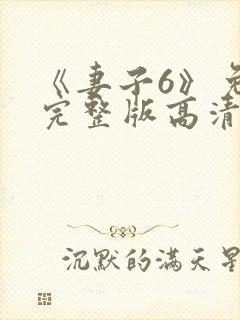 《妻子6》免
完整版高清
沉默的满天星